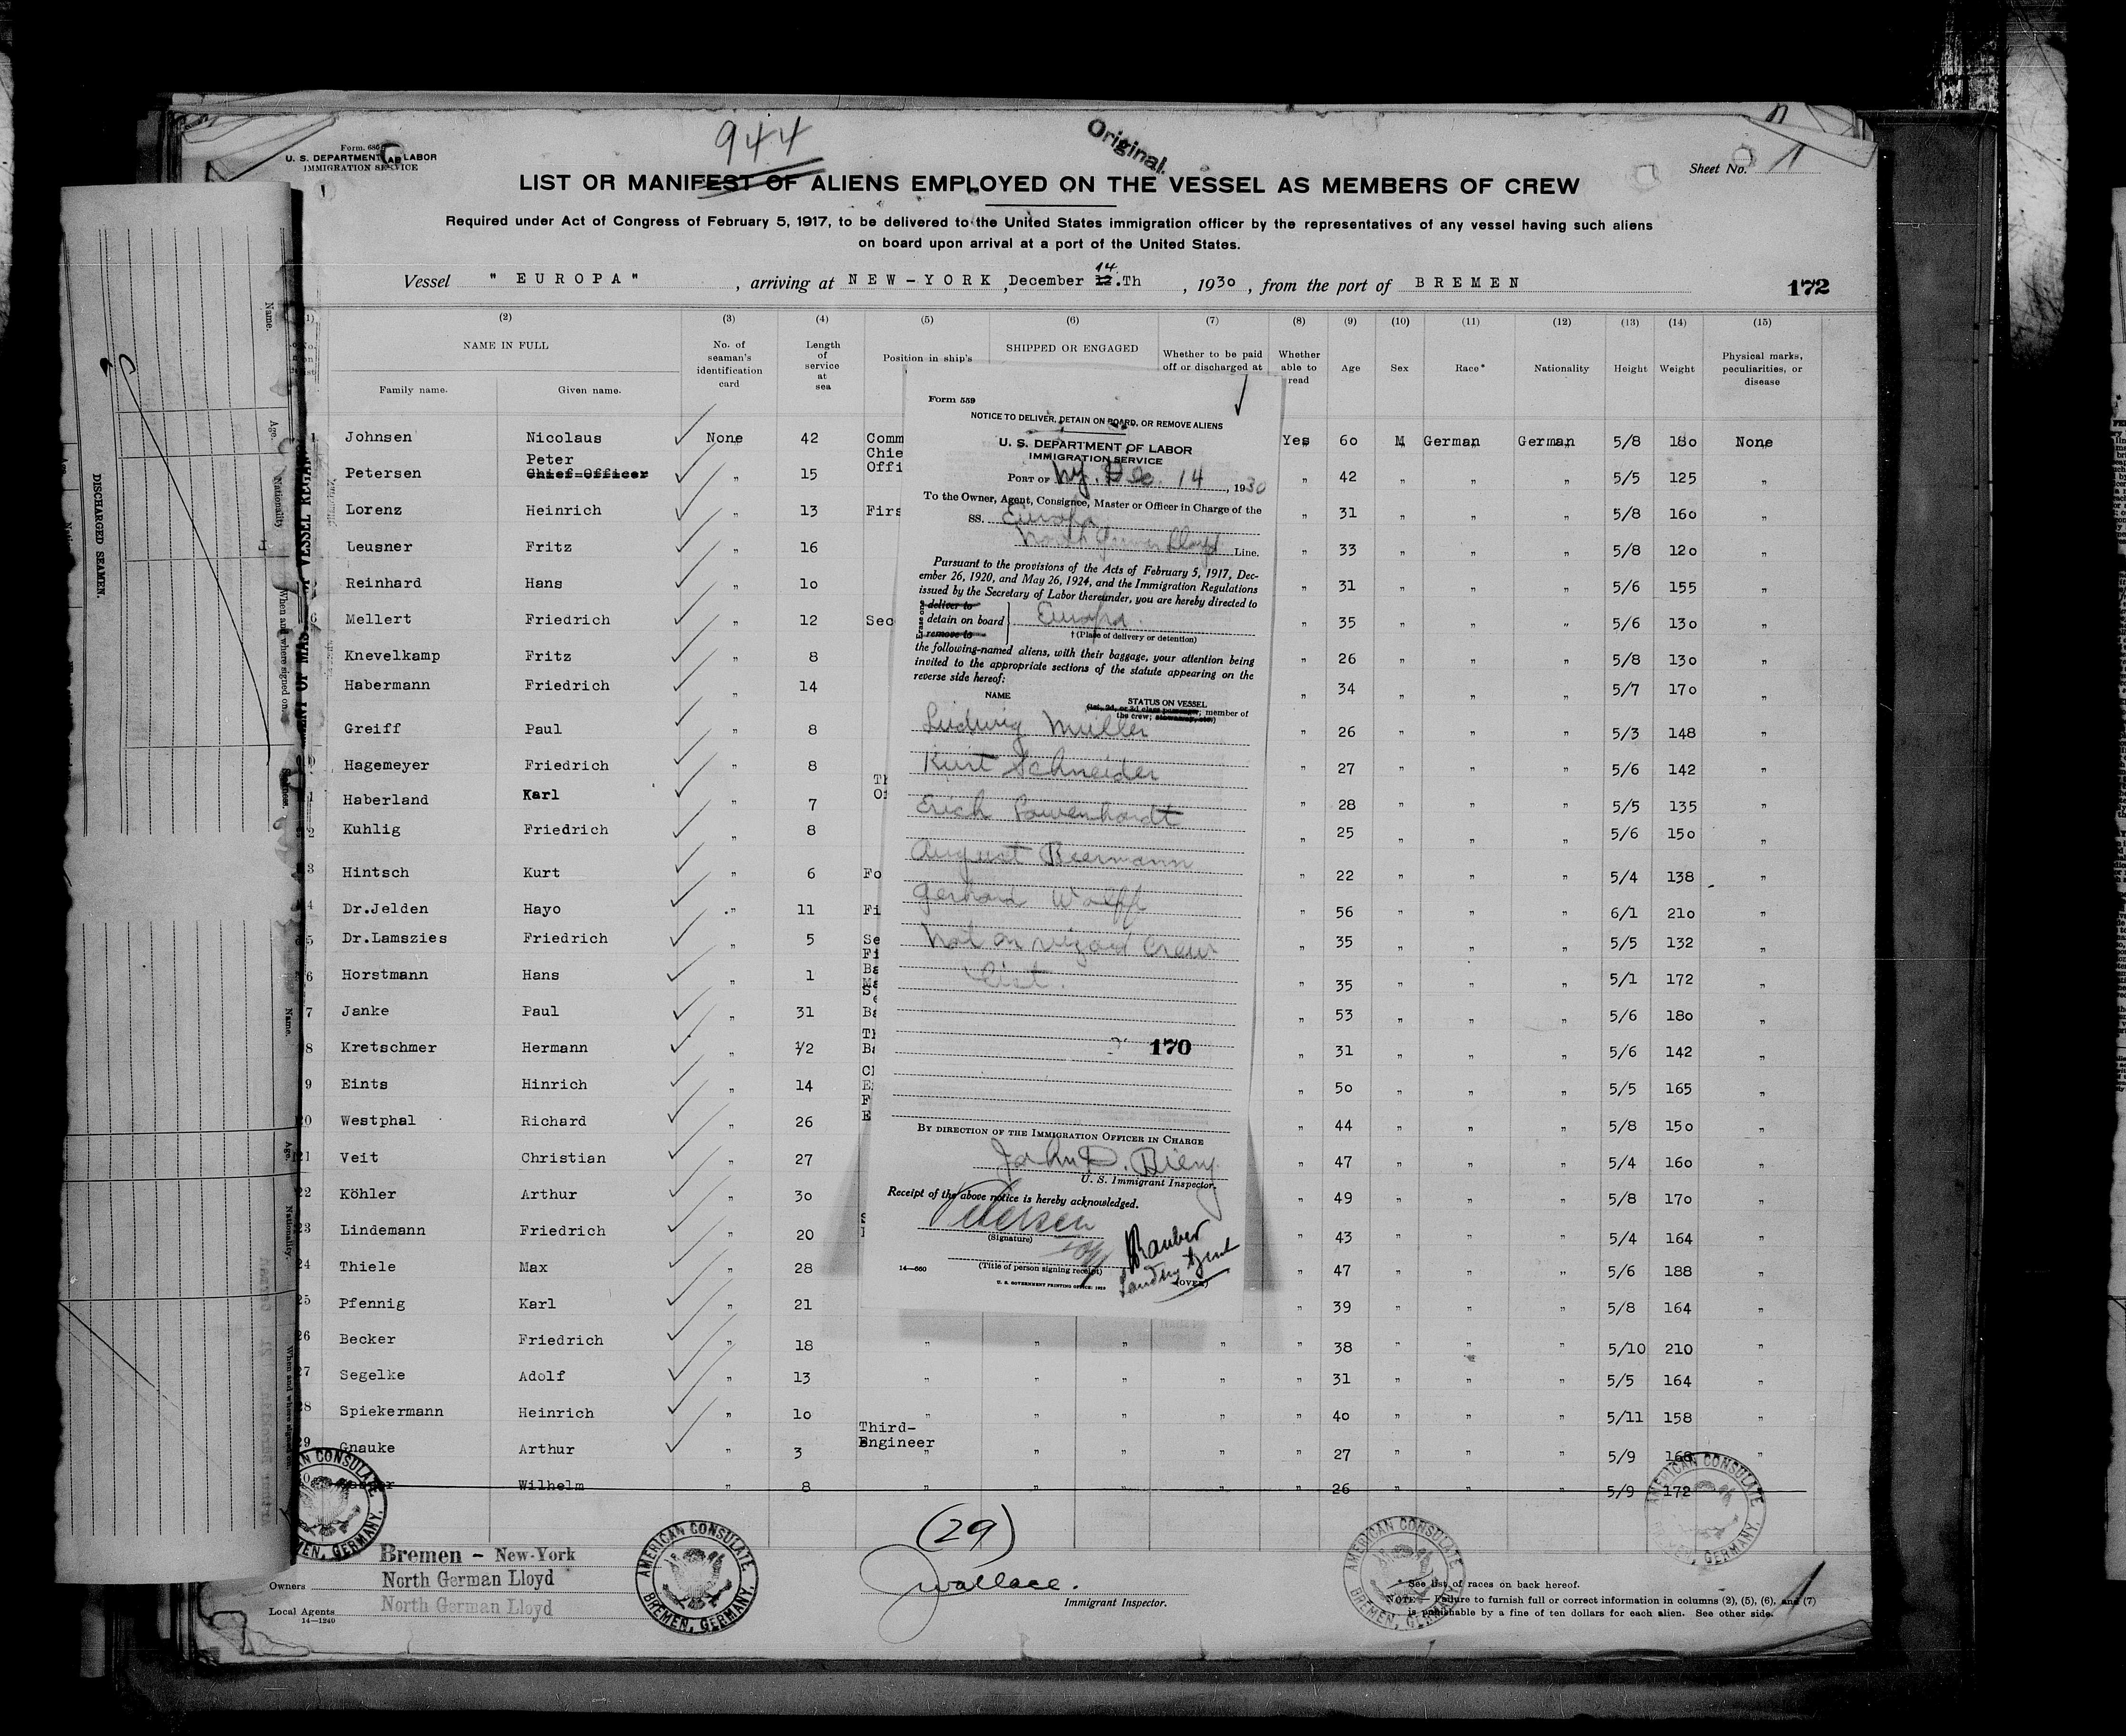 944
Original.
Form 680
U. S. DEPARTMENT LABOR
IMMIGRATION SERVICE
Sheet No. 1
LIST OR MANIFEST OF ALIENS EMPLOYED ON THE VESSEL AS MEMBERS OF CREW
Required under Act of Congress of February 5, 1917, to be delivered to the United States immigration officer by the representatives of any vessel having such aliens
on board upon arrival at a port of the United States.
Vessel " EUROPA " , arriving at NEW-YORK , December 12. 14 Th , 1930 , from the port of BREMEN
172
(2) (3) (4) (5) (6) (7) (8) (9) (10) (11) (12) (13) (14) (15)
NAME IN FULL
Family name. Given name.
No. of seaman's identification card
Length of service at sea
Position in ship's
SHIPPED OR ENGAGED
Whether to be paid off or discharged at
Whether able to read
Age Sex Race* Nationality Height Weight
Physical marks, peculiarities, or disease
1 Johnsen Nicolaus None 42 Comm Yes 60 M German German 5/8 180 None
Petersen Peter Chief-Officer " 15 Chie Offi " 42 " " " 5/5 125 "
Lorenz Heinrich " 13 Firs " 31 " " " 5/8 160 "
Leusner Fritz " 16 " 33 " " " 5/8 120 "
Reinhard Hans " 10 " 31 " " " 5/6 155 "
6 Mellert Friedrich " 12 Sec " 35 " " " 5/6 130 "
Knevelkamp Fritz " 8 " 26 " " " 5/8 130 "
Habermann Friedrich " 14 " 34 " " " 5/7 170 "
Greiff Paul " 8 " 26 " " " 5/3 148 "
Hagemeyer Friedrich " 8 " 27 " " " 5/6 142 "
1 Haberland Karl " 7 Th Of " 28 " " " 5/5 135 "
2 Kuhlig Friedrich " 8 " 25 " " " 5/6 150 "
3 Hintsch Kurt " 6 Fo " 22 " " " 5/4 138 "
4 Dr.Jelden Hayo " 11 Fi " 56 " " " 6/1 210 "
5 Dr.Lamszies Friedrich " 5 Se " 35 " " " 5/5 132 "
6 Horstmann Hans " 1 Fi Ba Ma " 35 " " " 5/1 172 "
7 Janke Paul " 31 Ba " 53 " " " 5/6 180 "
8 Kretschmer Hermann " 1/2 Th Ba " 31 " " " 5/6 142 "
9 Eints Hinrich " 14 " 50 " " " 5/5 165 "
20 Westphal Richard " 26 " 44 " " " 5/8 150 "
21 Veit Christian " 27 " 47 " " " 5/4 160 "
22 Köhler Arthur " 30 " 49 " " " 5/8 170 "
23 Lindemann Friedrich " 20 " 43 " " " 5/4 164 "
24 Thiele Max " 28 " 47 " " " 5/6 188 "
25 Pfennig Karl " 21 " 39 " " " 5/8 164 "
26 Becker Friedrich " 18 " " " " " 38 " " " 5/10 210 "
27 Segelke Adolf " 13 " " " " " 31 " " " 5/5 164 "
28 Spiekermann Heinrich " 10 " " " " " 40 " " " 5/11 158 "
29 Gnauke Arthur " 3 Third-Engineer " " " " 27 " " " 5/9 168 "
Wilhelm " 8 " " " " " 26 " " " 5/9 172 "
Form 559
NOTICE TO DELIVER, DETAIN ON BOARD, OR REMOVE ALIENS
U. S. DEPARTMENT OF LABOR
IMMIGRATION SERVICE
PORT OF Ny. Dec. 14 , 1930
To the Owner, Agent, Consignee, Master or Officer in Charge of the
SS. Europa
North German Lloyd Line.
Pursuant to the provisions of the Acts of February 5, 1917, Dec-
ember 26, 1920, and May 26, 1924, and the Immigration Regulations
issued by the Secretary of Labor thereunder, you are hereby directed to
Erase one
deliver to
detain on board Europa.
remove to
† (Place of delivery or detention)
the following-named aliens, with their baggage, your attention being
invited to the appropriate sections of the statute appearing on the
reverse side hereof:
NAME STATUS ON VESSEL
(1st, 2d, or 3d class passenger; member of
the crew; stowaway, etc.)
Ludwig Müller
Kurt Schneider
Erich Lowenhardt
August Beermann
Gerhard Wolff
Not on vizaed Crew
List.
170
BY DIRECTION OF THE IMMIGRATION OFFICER IN CHARGE
John D. Bieny
U. S. Immigrant Inspector.
Receipt of the above notice is hereby acknowledged.
Petersen
(Signature)
(Title of person signing receipt)
Landing Agent
14—660
U. S. GOVERNMENT PRINTING OFFICE: 1928
(OVER)
(29)
JWallace.
Immigrant Inspector.
Bremen - New-York
Owners North German Lloyd
Local Agents North German Lloyd
14—1240
AMERICAN CONSULATE BREMEN, GERMANY.
AMERICAN CONSULATE BREMEN, GERMANY.
AMERICAN CONSULATE BREMEN, GERMANY.
AMERICAN CONSULATE BREMEN, GERMANY.
* See list of races on back hereof.
NOTE.—Failure to furnish full or correct information in columns (2), (5), (6), and (7)
is punishable by a fine of ten dollars for each alien. See other side.
1
DISCHARGED SEAMEN.
Name.
Age.
Nationality
When and where signed on.
Name.
Age.
Nationality.
When and where signed on.
VESSEL REGAR